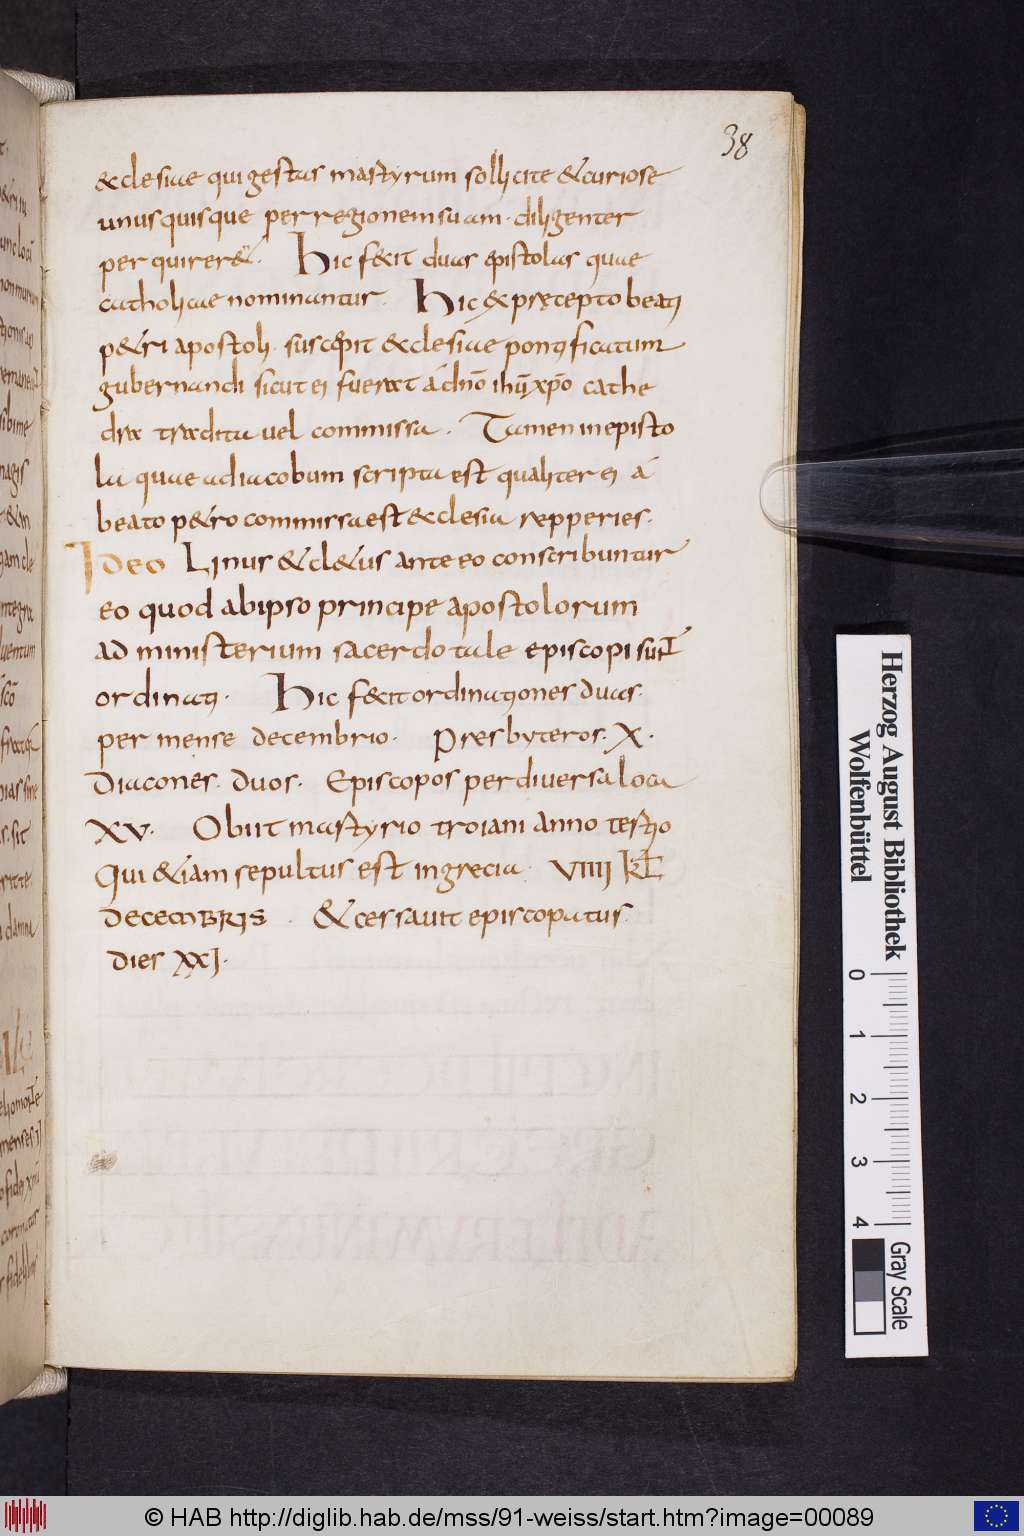 38
&clesiae qui gestas martyrum sollicite & curiose
unusquisque per regionem suam · diligenter
perquirer& · Hic fecit duas epistolas quae
catholicae nominantur · Hic ex præcepto beati
p&ri apostoli · suscepit &clesiae pontificatum
gubernandi sicut ei fuerat a dnō ihū xpō cathe
dra tradita vel commissa · Tamen in episto
la quae ad iacobum scripta est qualiter ei a
beato p&ro commissa est &clesia repperies ·
Ideo Linus & cl&us ante eo conscribuntur
eo quod ab ipso principe apostolorum
ad ministerium sacerdotale episcopi sunt
ordinati · Hic fecit ordinationes duas ·
per mense decembrio · Presbyteros · X ·
Diacones · duos · Episcopos per diversa loca
XV · Obiit martyrio troiani anno tertio
Qui &iam sepultus est in grecia · VIIII KL
DECEMBRIS · & cessavit episcopatus ·
dies XXI ·
Herzog August Bibliothek
Wolfenbüttel
0 1 2 3 4
Gray Scale
© HAB http://diglib.hab.de/mss/91-weiss/start.htm?image=00089